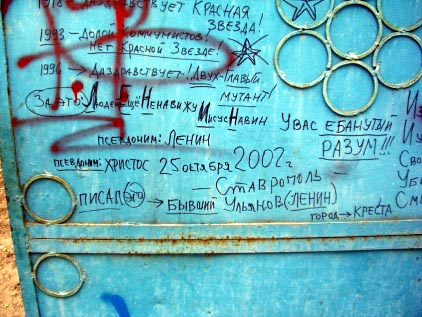 1918 – ДАЗДРАВСТВУЕТ КРАСНАЯ
ЗВЕЗДА!
1993 – ДОЛОЙ КОММУНИСТОВ!
НЕТ КРАСНОЙ ЗВЕЗДЕ!
1996 – ДАЗДРАВСТВУЕТ! ДВУХ-ГЛАВЫЙ
МУТАНТ!
ЗА ЭТО ЛЮДЕЙ ЕЩЁ НЕНАВИЖУ ИИСУС НАВИН
ПСЕВДОНИМ: ЛЕНИН
ПСЕВДОНИМ: ХРИСТОС 25 ОКТЯБРЯ 2002 г
– СТАВРОПОЛЬ
ПИСАЛ ЭТО → БЫВШИЙ УЛЬЯНОВ (ЛЕНИН)
ГОРОД → КРЕСТА
У ВАС ЕБАНУТЫЙ
РАЗУМ!!!